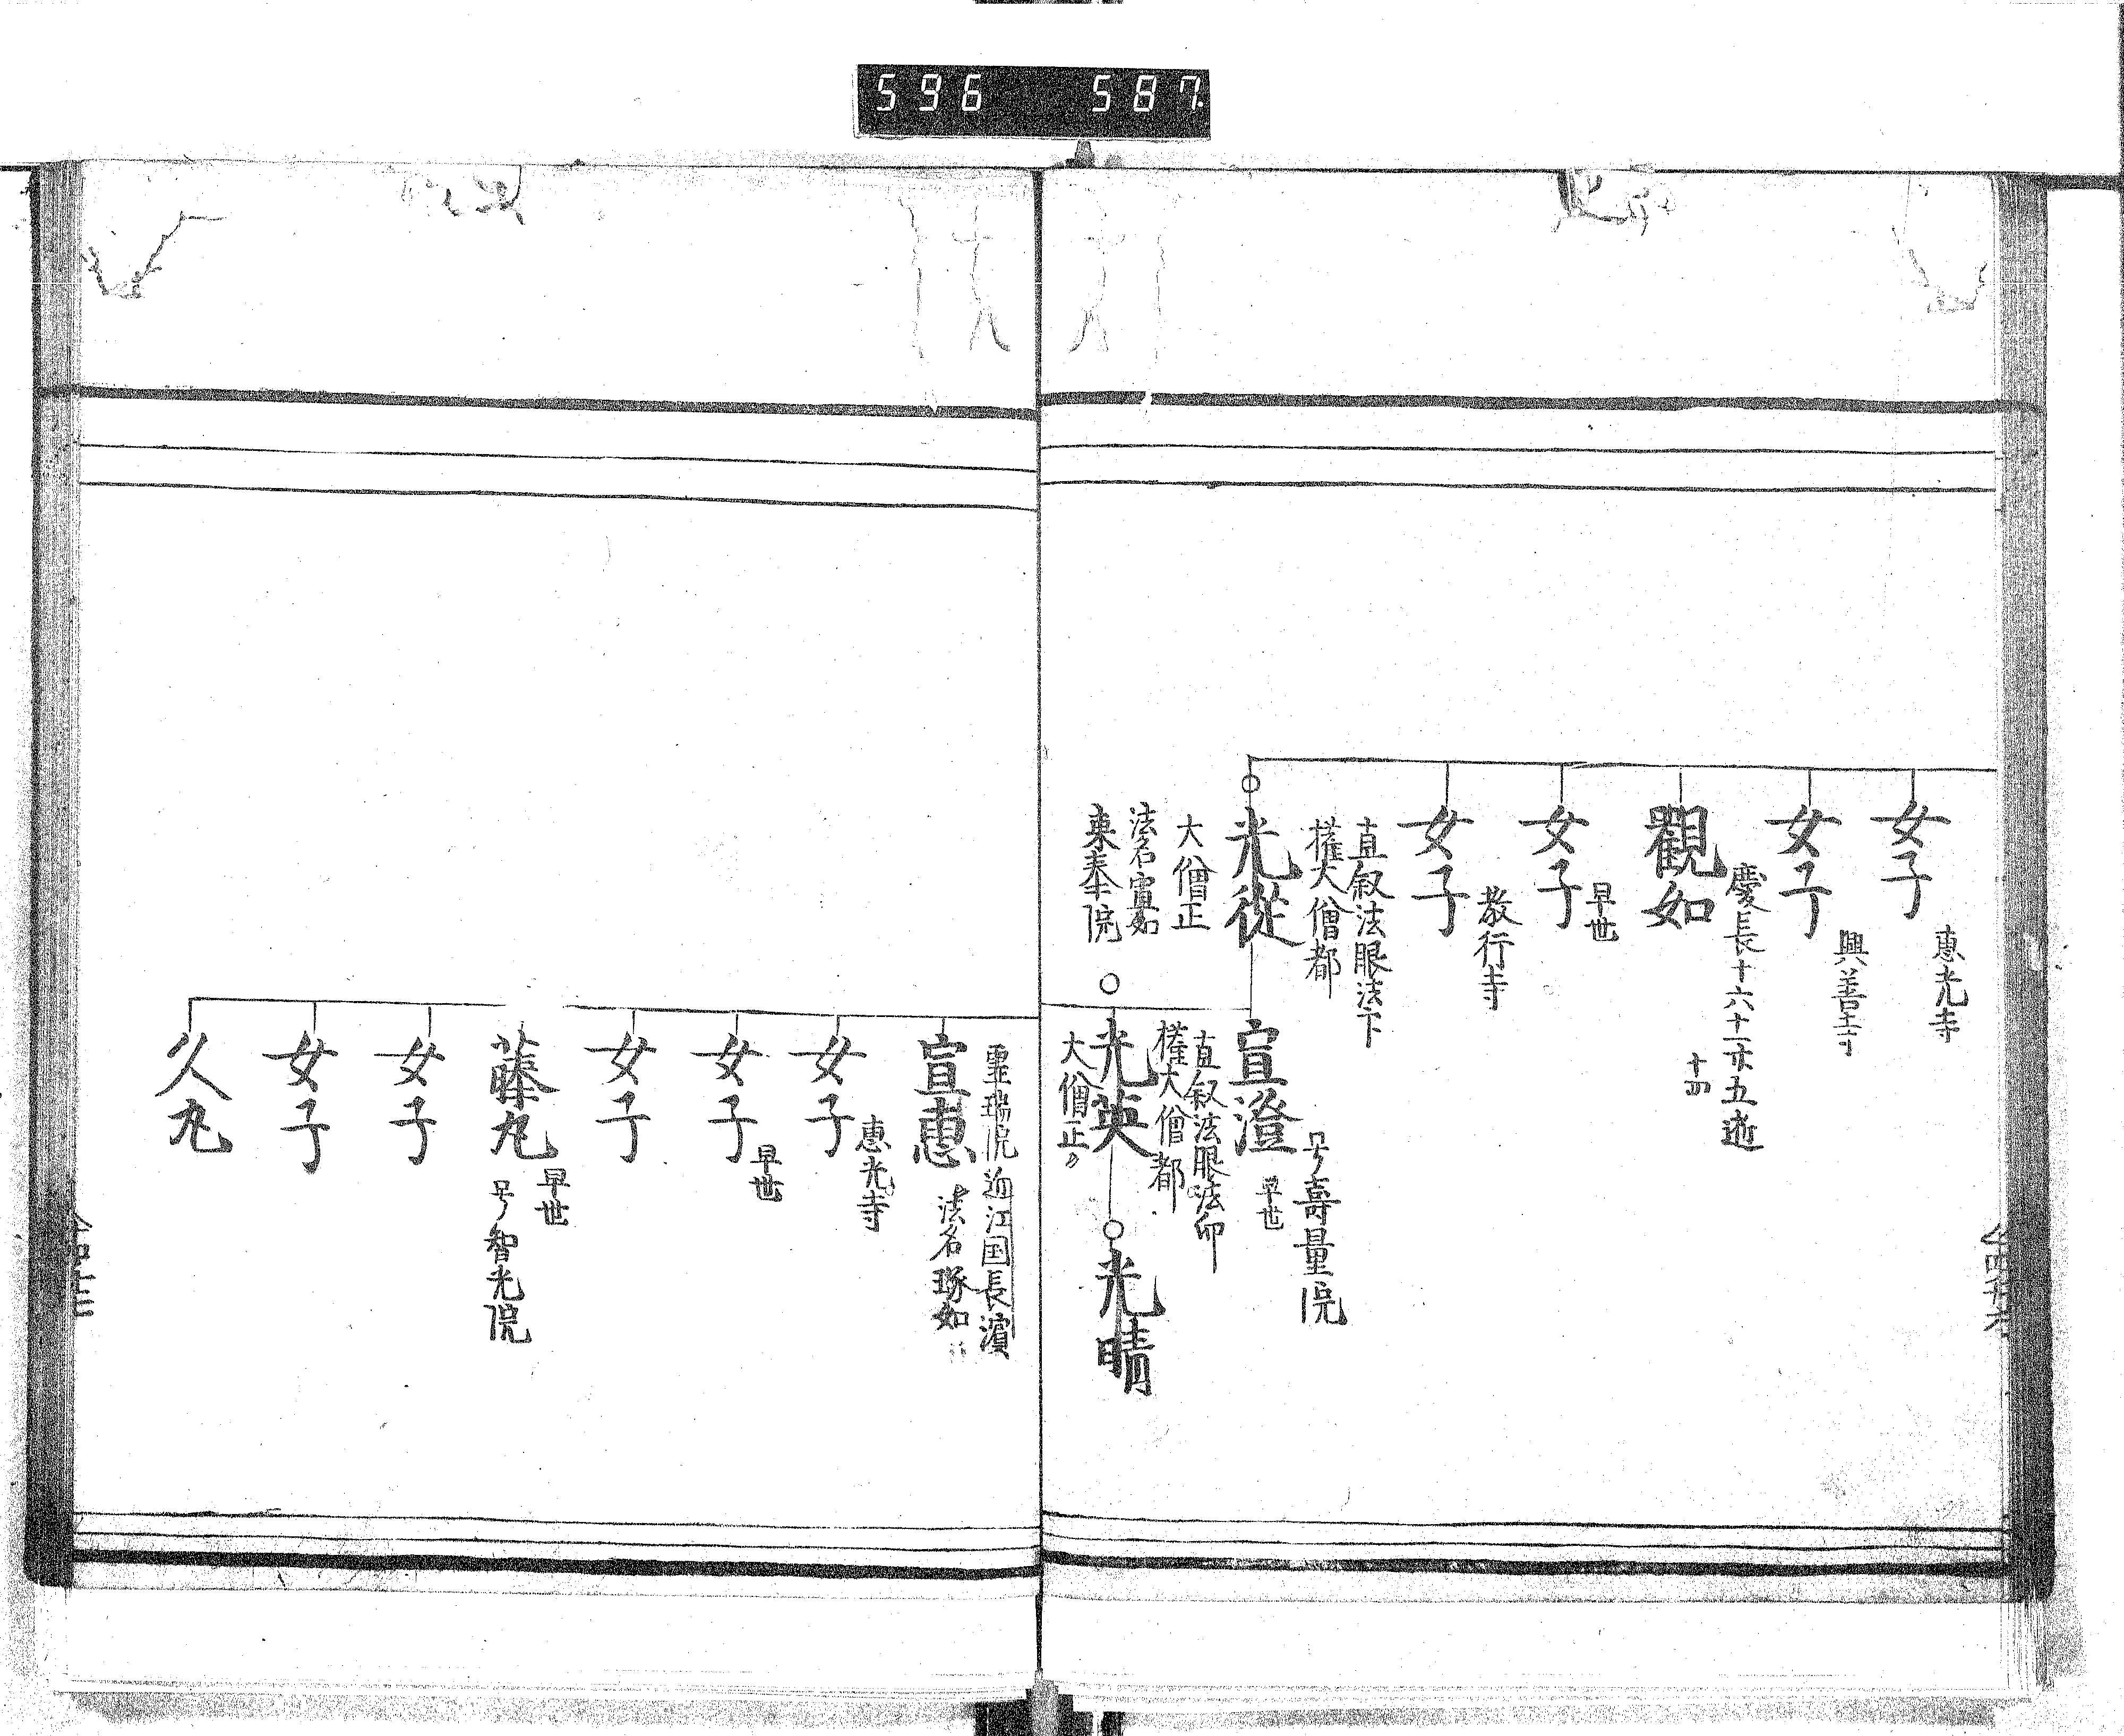 596 587
女子
惠光寺
女子
興善寺
觀如
慶長十六十一廿五逝
十四
女子
早世
女子
教行寺
光從
直叙法眼法下
權大僧都
大僧正
法名宣如
東泰院
宣澄
号壽量院
早世
光英
直叙法眼法印
權大僧都
大僧正
光晴
宣惠
霊瑞院近江国長濱
法名琢如
女子
惠光寺
女子
早世
女子
藤丸
早世
号智光院
女子
女子
久丸